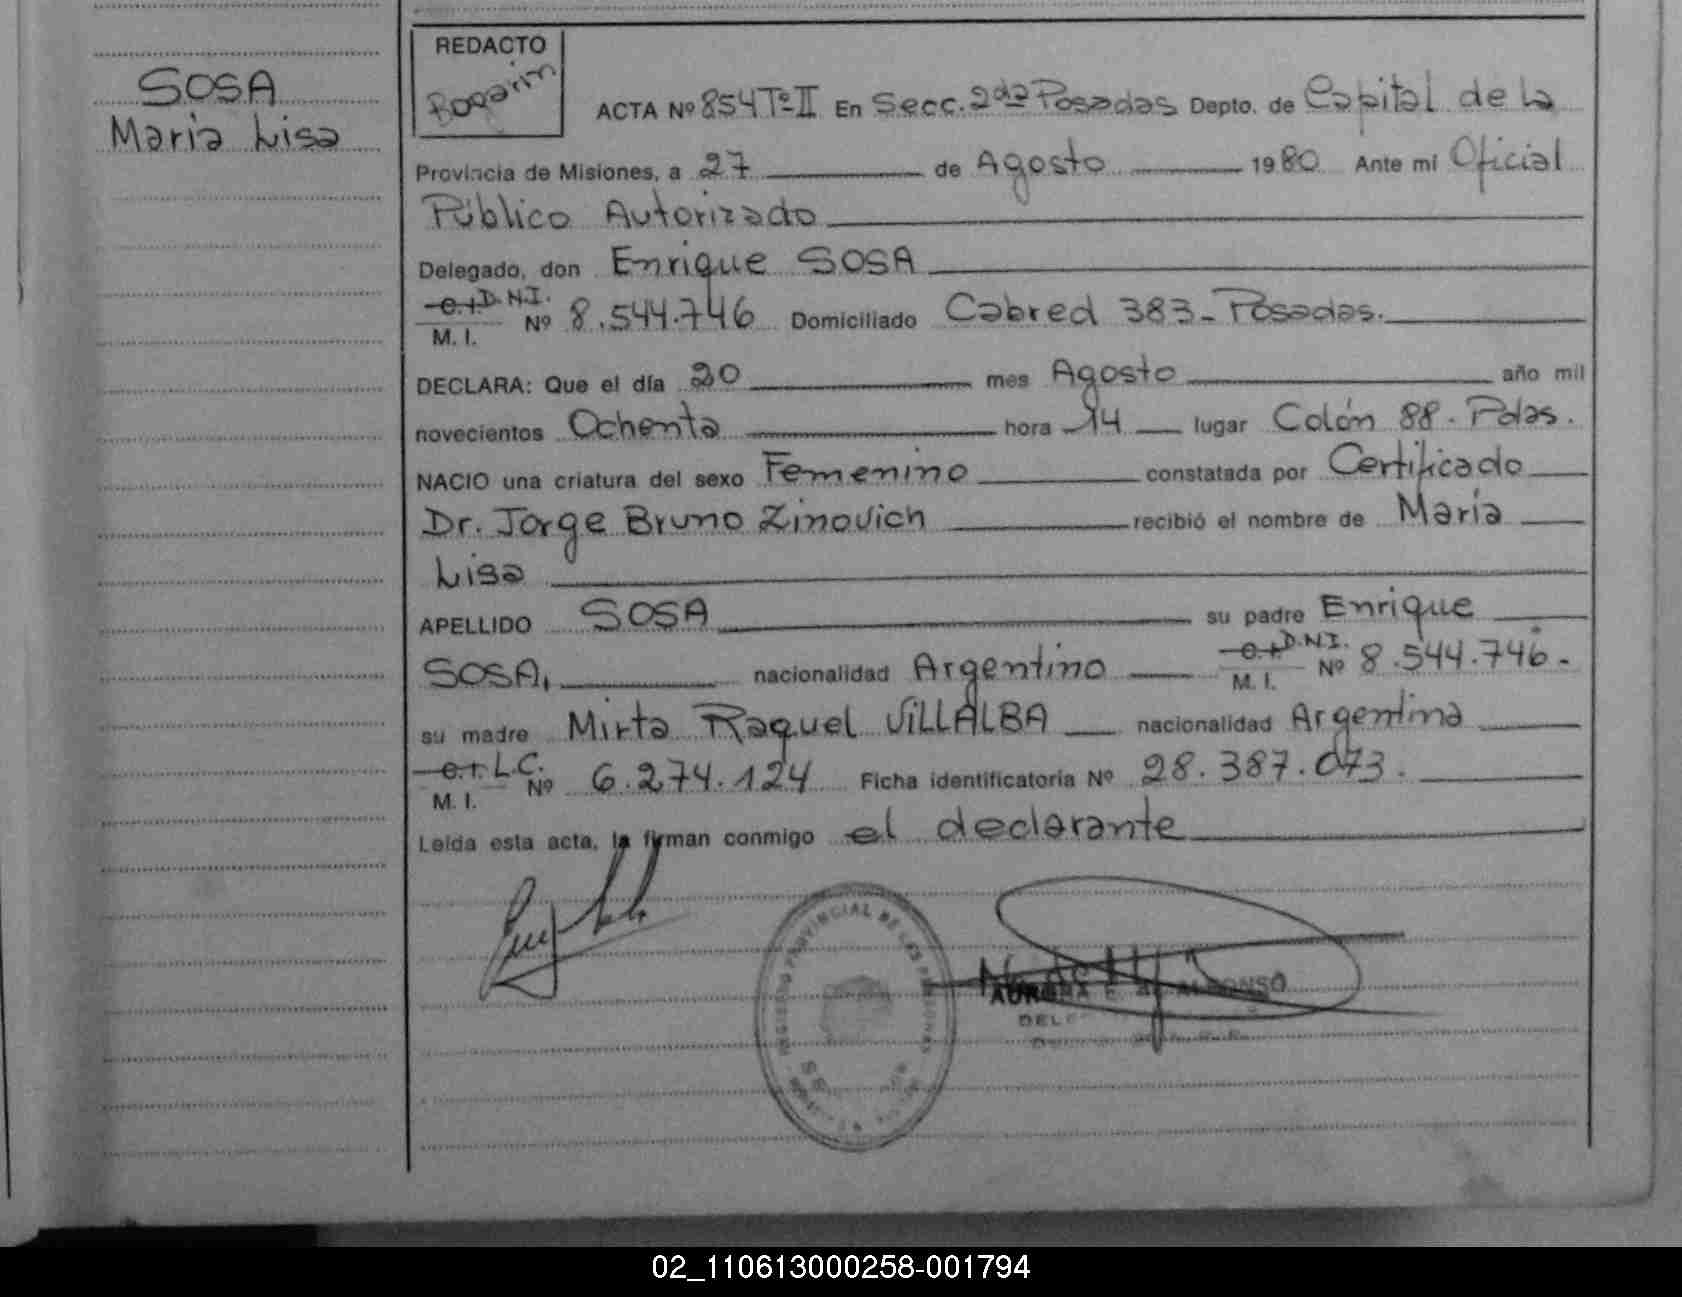 SOSA
Maria Lisa
REDACTO
ACTA Nº 854 Tº II En Secc. 2da Posadas Depto. de Capital de la
Provincia de Misiones, a 27 de Agosto 1980 Ante mi Oficial
Público Autorizado
Delegado, don Enrique SOSA
C.I. D.N.I.
M. I. Nº 8.544.746 Domiciliado Cabred 383 - Posadas.
DECLARA: Que el día 20 mes Agosto año mil
novecientos Ochenta hora 14 lugar Colón 88. Pdas.
NACIO una criatura del sexo Femenino constatada por Certificado
Dr. Jorge Bruno Zinovich recibió el nombre de María
Lisa
APELLIDO SOSA su padre Enrique
SOSA, nacionalidad Argentino C.I. D.N.I. M. I. Nº 8.544.746.
su madre Mirta Raquel VILLALBA nacionalidad Argentina
C.I. L.C.
M. I. Nº 6.274.124 Ficha identificatoria Nº 28.387.073.
Leída esta acta, la firman conmigo el declarante
REGISTRO PROVINCIAL DE LAS PERSONAS
02_110613000258-001794